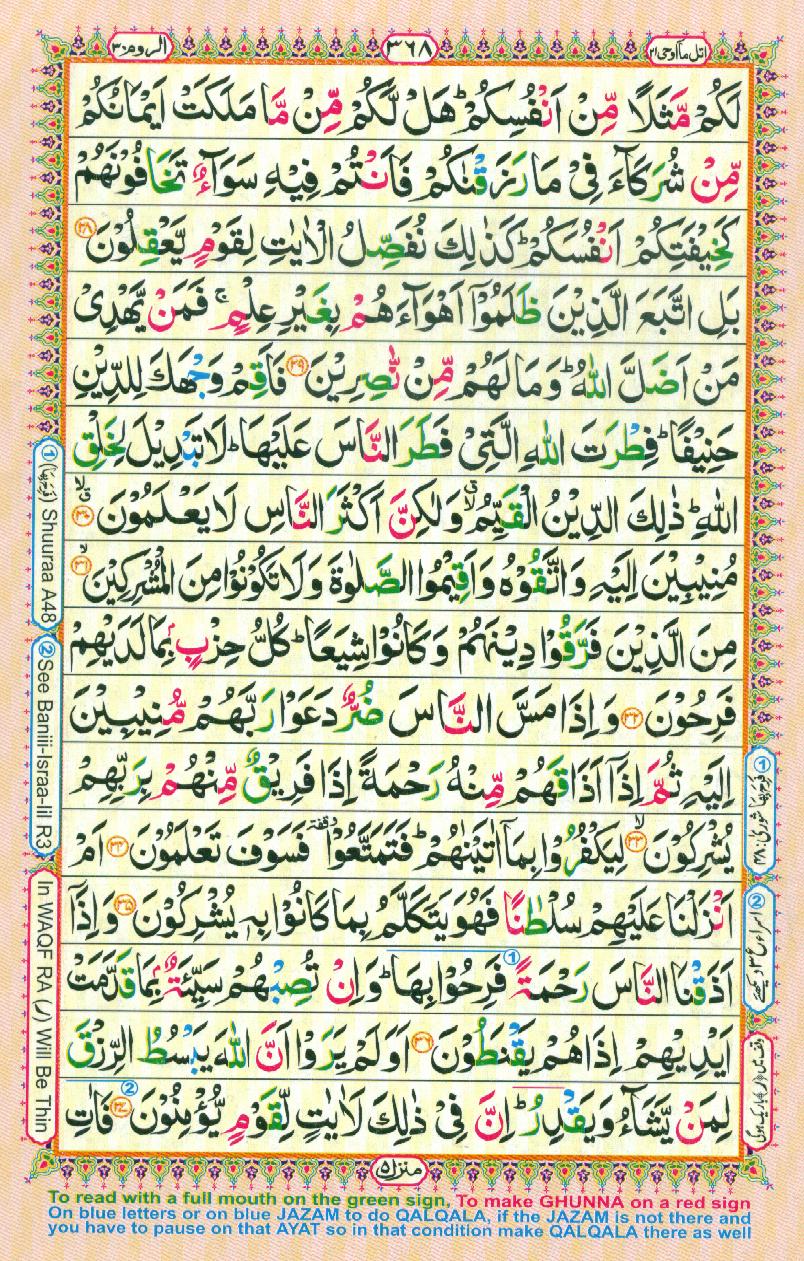 اتل مآ اوحی ۲۱
۳۶۸
الروم ۳۰
لَكُمْ مَّثَلًا مِّنْ اَنْفُسِكُمْ ؕ هَلْ لَّكُمْ مِّنْ مَّا مَلَكَتْ اَيْمَانُكُمْ
مِّنْ شُرَكَآءَ فِیْ مَا رَزَقْنٰكُمْ فَاَنْتُمْ فِيْهِ سَوَآءٌ تَخَافُوْنَهُمْ
كَخِيْفَتِكُمْ اَنْفُسَكُمْ ؕ كَذٰلِكَ نُفَصِّلُ الْاٰيٰتِ لِقَوْمٍ يَّعْقِلُوْنَ ۲۸
بَلِ اتَّبَعَ الَّذِيْنَ ظَلَمُوْۤا اَهْوَآءَهُمْ بِغَيْرِ عِلْمٍ ۚ فَمَنْ يَّهْدِیْ
مَنْ اَضَلَّ اللّٰهُ ؕ وَمَا لَهُمْ مِّنْ نّٰصِرِيْنَ ۲۹ فَاَقِمْ وَجْهَكَ لِلدِّيْنِ
حَنِيْفًا ؕ فِطْرَتَ اللّٰهِ الَّتِیْ فَطَرَ النَّاسَ عَلَيْهَا ؕ لَا تَبْدِيْلَ لِخَلْقِ
اللّٰهِ ؕ ذٰلِكَ الدِّيْنُ الْقَيِّمُ ۙ وَلٰكِنَّ اَكْثَرَ النَّاسِ لَا يَعْلَمُوْنَ ۳۰
مُنِيْبِيْنَ اِلَيْهِ وَاتَّقُوْهُ وَاَقِيْمُوا الصَّلٰوةَ وَلَا تَكُوْنُوْا مِنَ الْمُشْرِكِيْنَ ۳۱
مِنَ الَّذِيْنَ فَرَّقُوْا دِيْنَهُمْ وَكَانُوْا شِيَعًا ؕ كُلُّ حِزْبٍۭ بِمَا لَدَيْهِمْ
فَرِحُوْنَ ۳۲ وَاِذَا مَسَّ النَّاسَ ضُرٌّ دَعَوْا رَبَّهُمْ مُّنِيْبِيْنَ
اِلَيْهِ ثُمَّ اِذَاۤ اَذَاقَهُمْ مِّنْهُ رَحْمَةً اِذَا فَرِيْقٌ مِّنْهُمْ بِرَبِّهِمْ
يُشْرِكُوْنَ ۳۳ لِيَكْفُرُوْا بِمَاۤ اٰتَيْنٰهُمْ ؕ فَتَمَتَّعُوْا وقفة فَسَوْفَ تَعْلَمُوْنَ ۳۴ اَمْ
اَنْزَلْنَا عَلَيْهِمْ سُلْطٰنًا فَهُوَ يَتَكَلَّمُ بِمَا كَانُوْا بِهٖ يُشْرِكُوْنَ ۳۵ وَاِذَاۤ
اَذَقْنَا النَّاسَ رَحْمَةً ① فَرِحُوْا بِهَا ؕ وَاِنْ تُصِبْهُمْ سَيِّئَةٌۢ بِمَا قَدَّمَتْ
اَيْدِيْهِمْ اِذَا هُمْ يَقْنَطُوْنَ ۳۶ اَوَلَمْ يَرَوْا اَنَّ اللّٰهَ يَبْسُطُ الرِّزْقَ
لِمَنْ يَّشَآءُ وَيَقْدِرُ ؕ اِنَّ فِیْ ذٰلِكَ لَاٰيٰتٍ لِّقَوْمٍ يُّؤْمِنُوْنَ ۳۷ ② فَاٰتِ
① (فرح بها) Shuuraa A48
②See Baniii-Israa-Iil R3
In WAQF RA (ر) Will Be Thin
① فرح بها شوری: ۴۸
② اسراء ع ۳ دیکھئے
وقف میں (ر) باریک ہوگی
منزل ۵
To read with a full mouth on the green sign, To make GHUNNA on a red sign
On blue letters or on blue JAZAM to do QALQALA, if the JAZAM is not there and
you have to pause on that AYAT so in that condition make QALQALA there as well